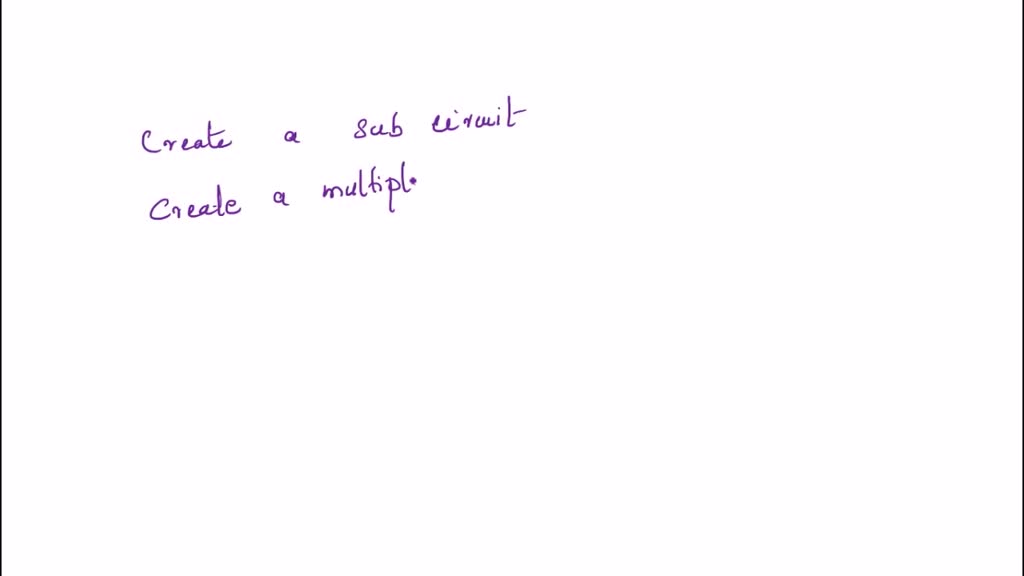 Create a sub circuit
Create a multipl